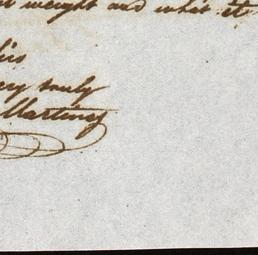 weight and what it
his
ery truly
Martiney